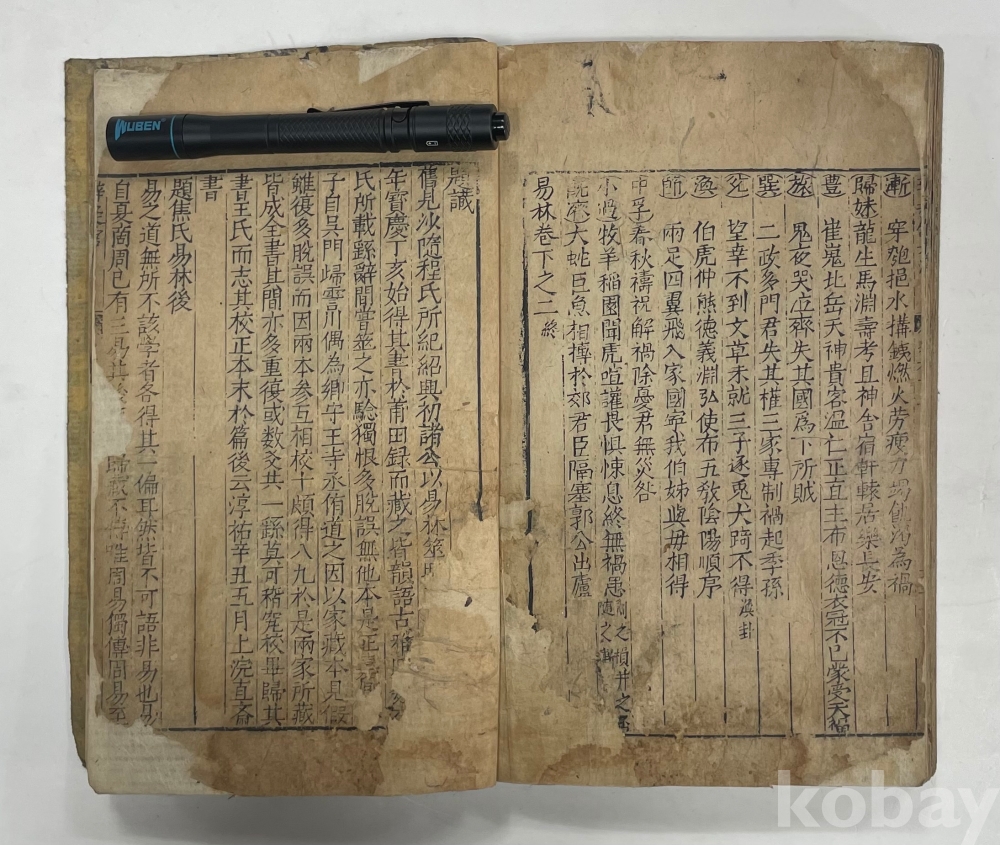 漸 穿匏挹水構鐵燃火勞疲力竭飢渴為禍
歸妹龍坐馬淵壽考且神舍宿軒轅居樂長安
豐 崔嵬北岳天神貴家溫仁正直主布恩德衣冠不已蒙受天福
旅 鬼夜哭立齊失其國爲下所賊
巽 二政多門君失其權三家專制禍起季孫
兌 望幸不到文章未就三子逐兎犬踦不得渙卦
渙 伯虎仲熊德義淵弘使布五敎陰陽順序
節 兩足四翼飛入家國寧我伯姊與母相得
中孚春秋禱祝解禍除憂君無災咎
小過牧羊稻園聞虎喧讙畏惧悚息終無禍患
大蛇巨魚相搏於郊君臣隔塞郭公出廬
易林卷下之二終
題識
舊見沙隨程氏所紀紹興初諸公以易林筮
年寶慶丁亥始得其書於莆田録而藏之皆韻語古雅
氏所載繇辭間嘗筮之亦驗獨恨多脫誤無他本是正
子自吳門歸霅川偶為郷守王寺丞侑道之因以家藏本見假
雖復多脫誤而因兩本參互相校十頗得八九於是兩家所藏
皆成全書其間亦多重復或數爻共一繇莫可稽究校畢歸其
書王氏而志其校正本末於篇後云淳祐辛丑五月上浣直斎
書
題焦氏易林後
易之道無所不該学者各得其一偏耳然皆不可語非易也易
自夏商周已有三易 歸藏不得唯周易獨傳周易至
WUBEN
kobay